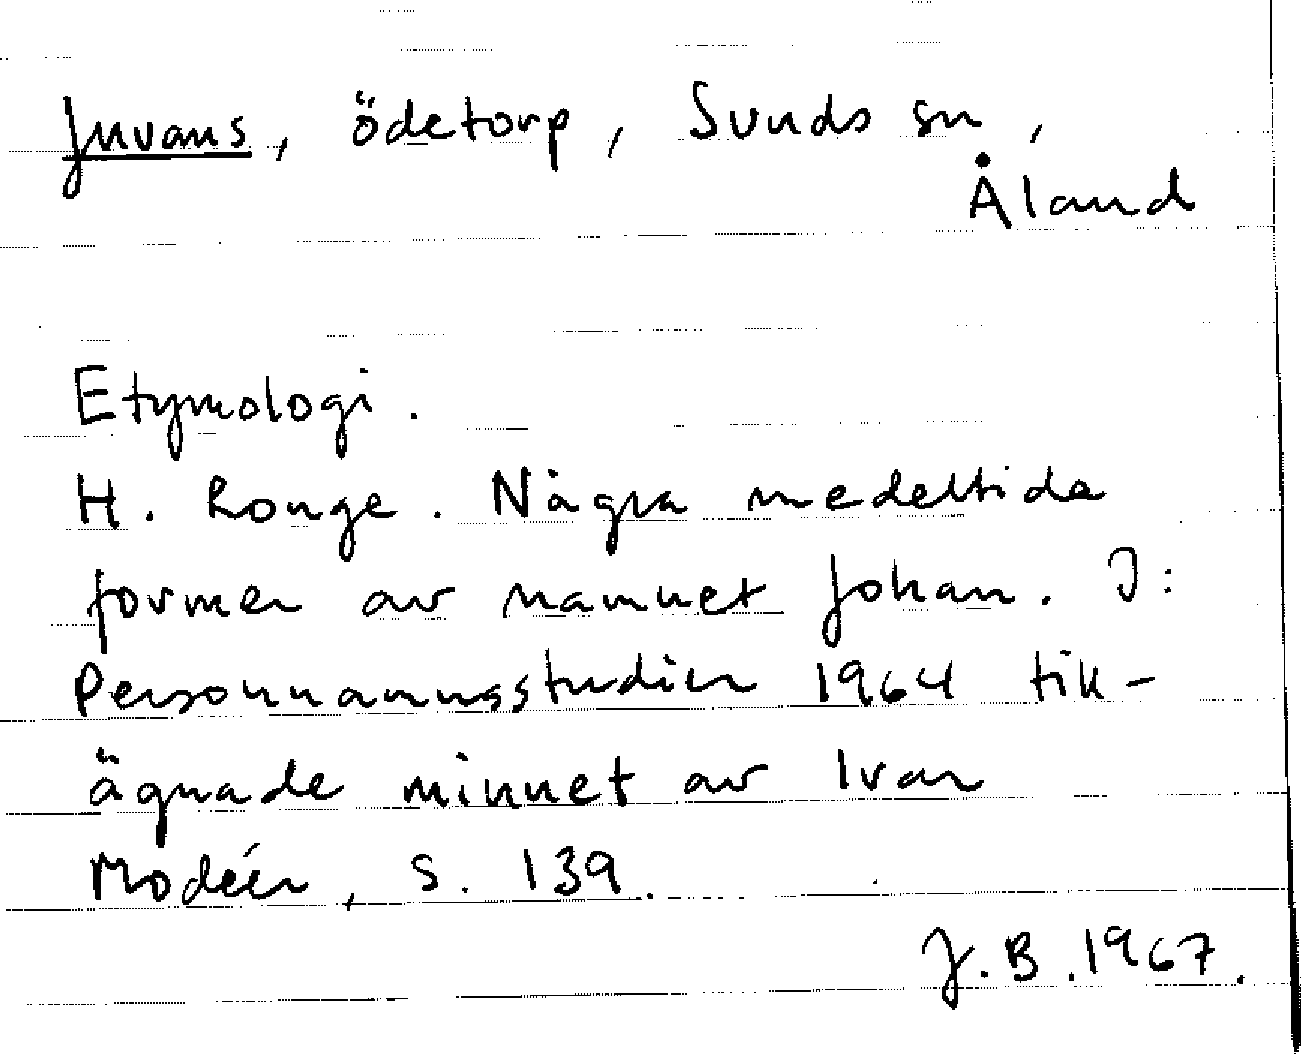 Juvans, ödetorp, Sunds sn,
Åland
Etymologi.
H. Ronge. Några medeltida
former av namnet Johan. I:
Personnamnsstudier 1964 till-
ägnade minnet av Ivar
Modéer, s. 139.
J.B. 1967.